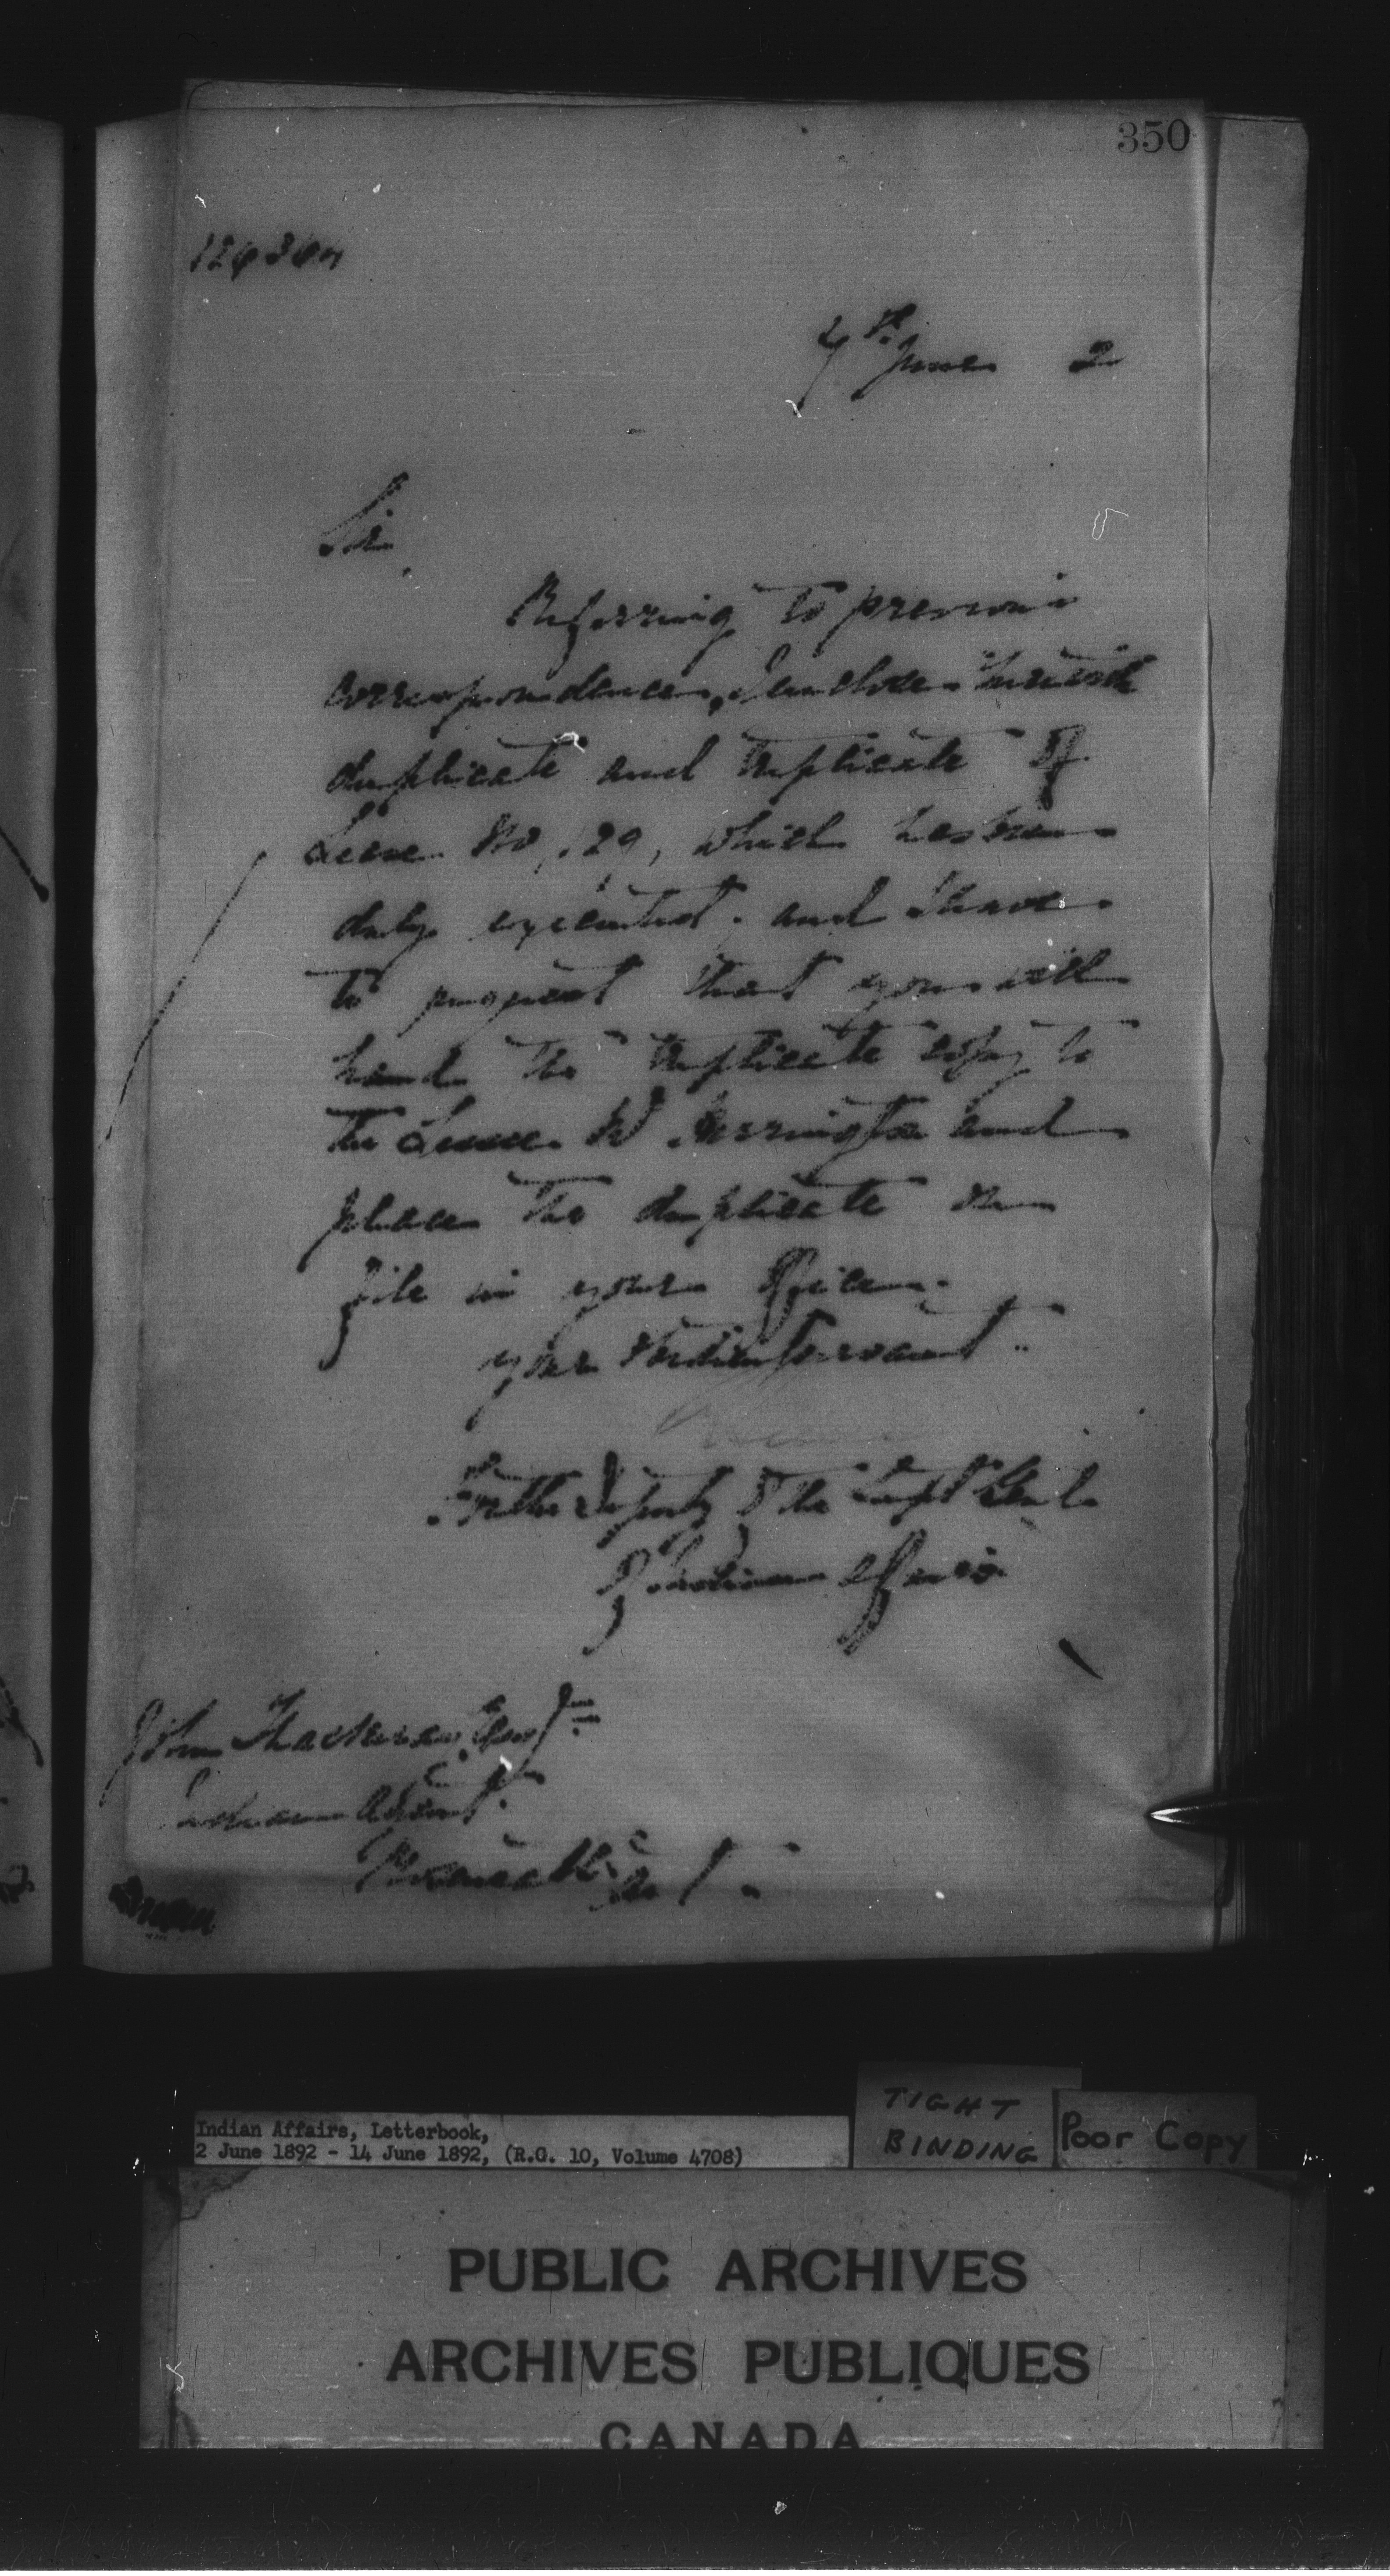 350
126304
7th June 2
Sir,
Referring to previous
correspondence, I enclose herewith
duplicate and triplicate of
Lease No. 129, which has been
duly executed, and I have
to request that you will
hand the triplicate copy to
the Lessee W. and
place the duplicate on
file in your office.
Your obedient servant
For the Deputy of the Supt Genl
of Indian Affairs
John Thackeray Esqr
Indian Agent
Ont.
Indian Affairs, Letterbook,
2 June 1892 - 14 June 1892, (R.G. 10, Volume 4708)
TIGHT
BINDING
Poor Copy
PUBLIC ARCHIVES
ARCHIVES PUBLIQUES
CANADA